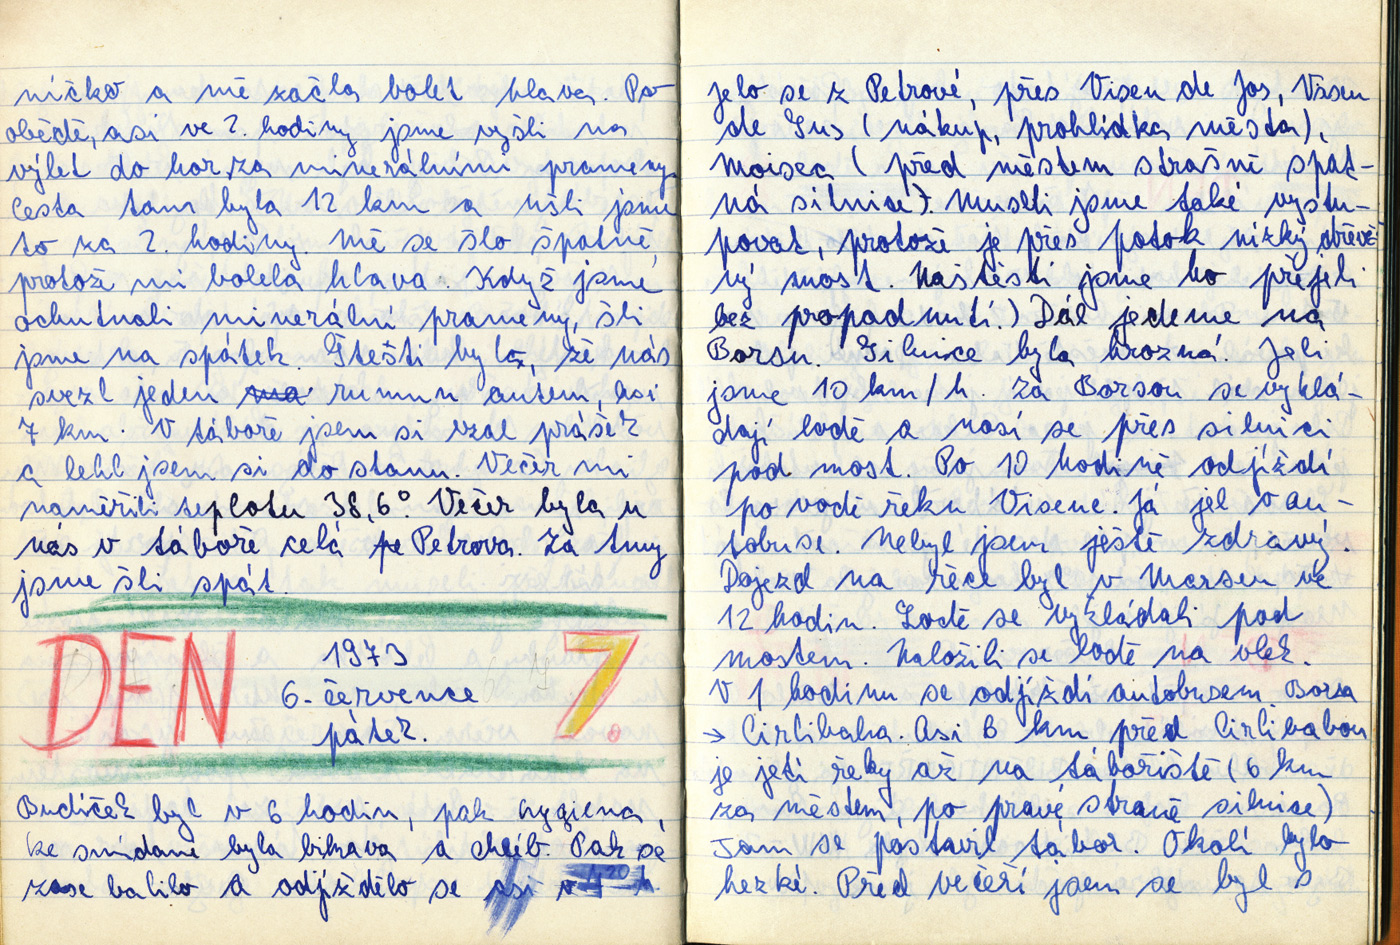 níčko a mě začla bolet hlava. Po
obědě, asi ve 2. hodiny jsme vyšli na
výlet do hor, za minerálními prameny.
Cesta tam byla 12 km a ušli jsme
to za 2. hodiny. Mě se šlo špatně,
protože mi bolela hlava. Když jsme
ochutnali minerální prameny, šli
jsme na spátek. Štěstí bylo, že nás
svezl jeden rumun autem asi
7 km. V táboře jsem si vzal prášek
a lehl jsem si do stanu. Večer mi
naměřili teplotu 38,6° Večer byla u
nás v táboře celá Petrova. Za tmy
jsme šli spát.
DEN 1973 7
6. července
pátek.
Budíček byl v 6 hodin, pak hygiena,
ke snídani byla bikava a chléb. Pak se
zase balilo a odjíždělo se asi v h.
jelo se z Petrové, přes Viseu de Jos, Viseu
de Sus (nákup, prohlídka města),
Moisea (před městem strašně špat-
ná silnice). Museli jsme také vystu-
povat, protože je přes potok nízký dřevě-
ný most. Naštěstí jsme ho přejeli
bez propadnutí.) Dál jedeme na
Borsu. Silnice byla hrozná. Jeli
jsme 10 km/h. Za Borsou se vyklá-
dají lodě a nosí se přes silnici
pod most. Po 10 hodině odjíždí
po vodě řeku Viseue. Já jel v au-
tobuse. Nebyl jsem ještě zdravý.
Dojezd na řece byl v Morseu ve
12 hodin. Lodě se vykládali pod
mostem. Naložili se lodě na vlek.
V 1 hodinu se odjíždí autobusem Borsa
→ Cirlibaba. Asi 6 km před Cirlibabou
je jetí řeky až na tábořiště (6 km
za městem, po pravé straně silnice)
Tam se postavil tábor. Okolí bylo
hezké. Před večeří jsem se byl s